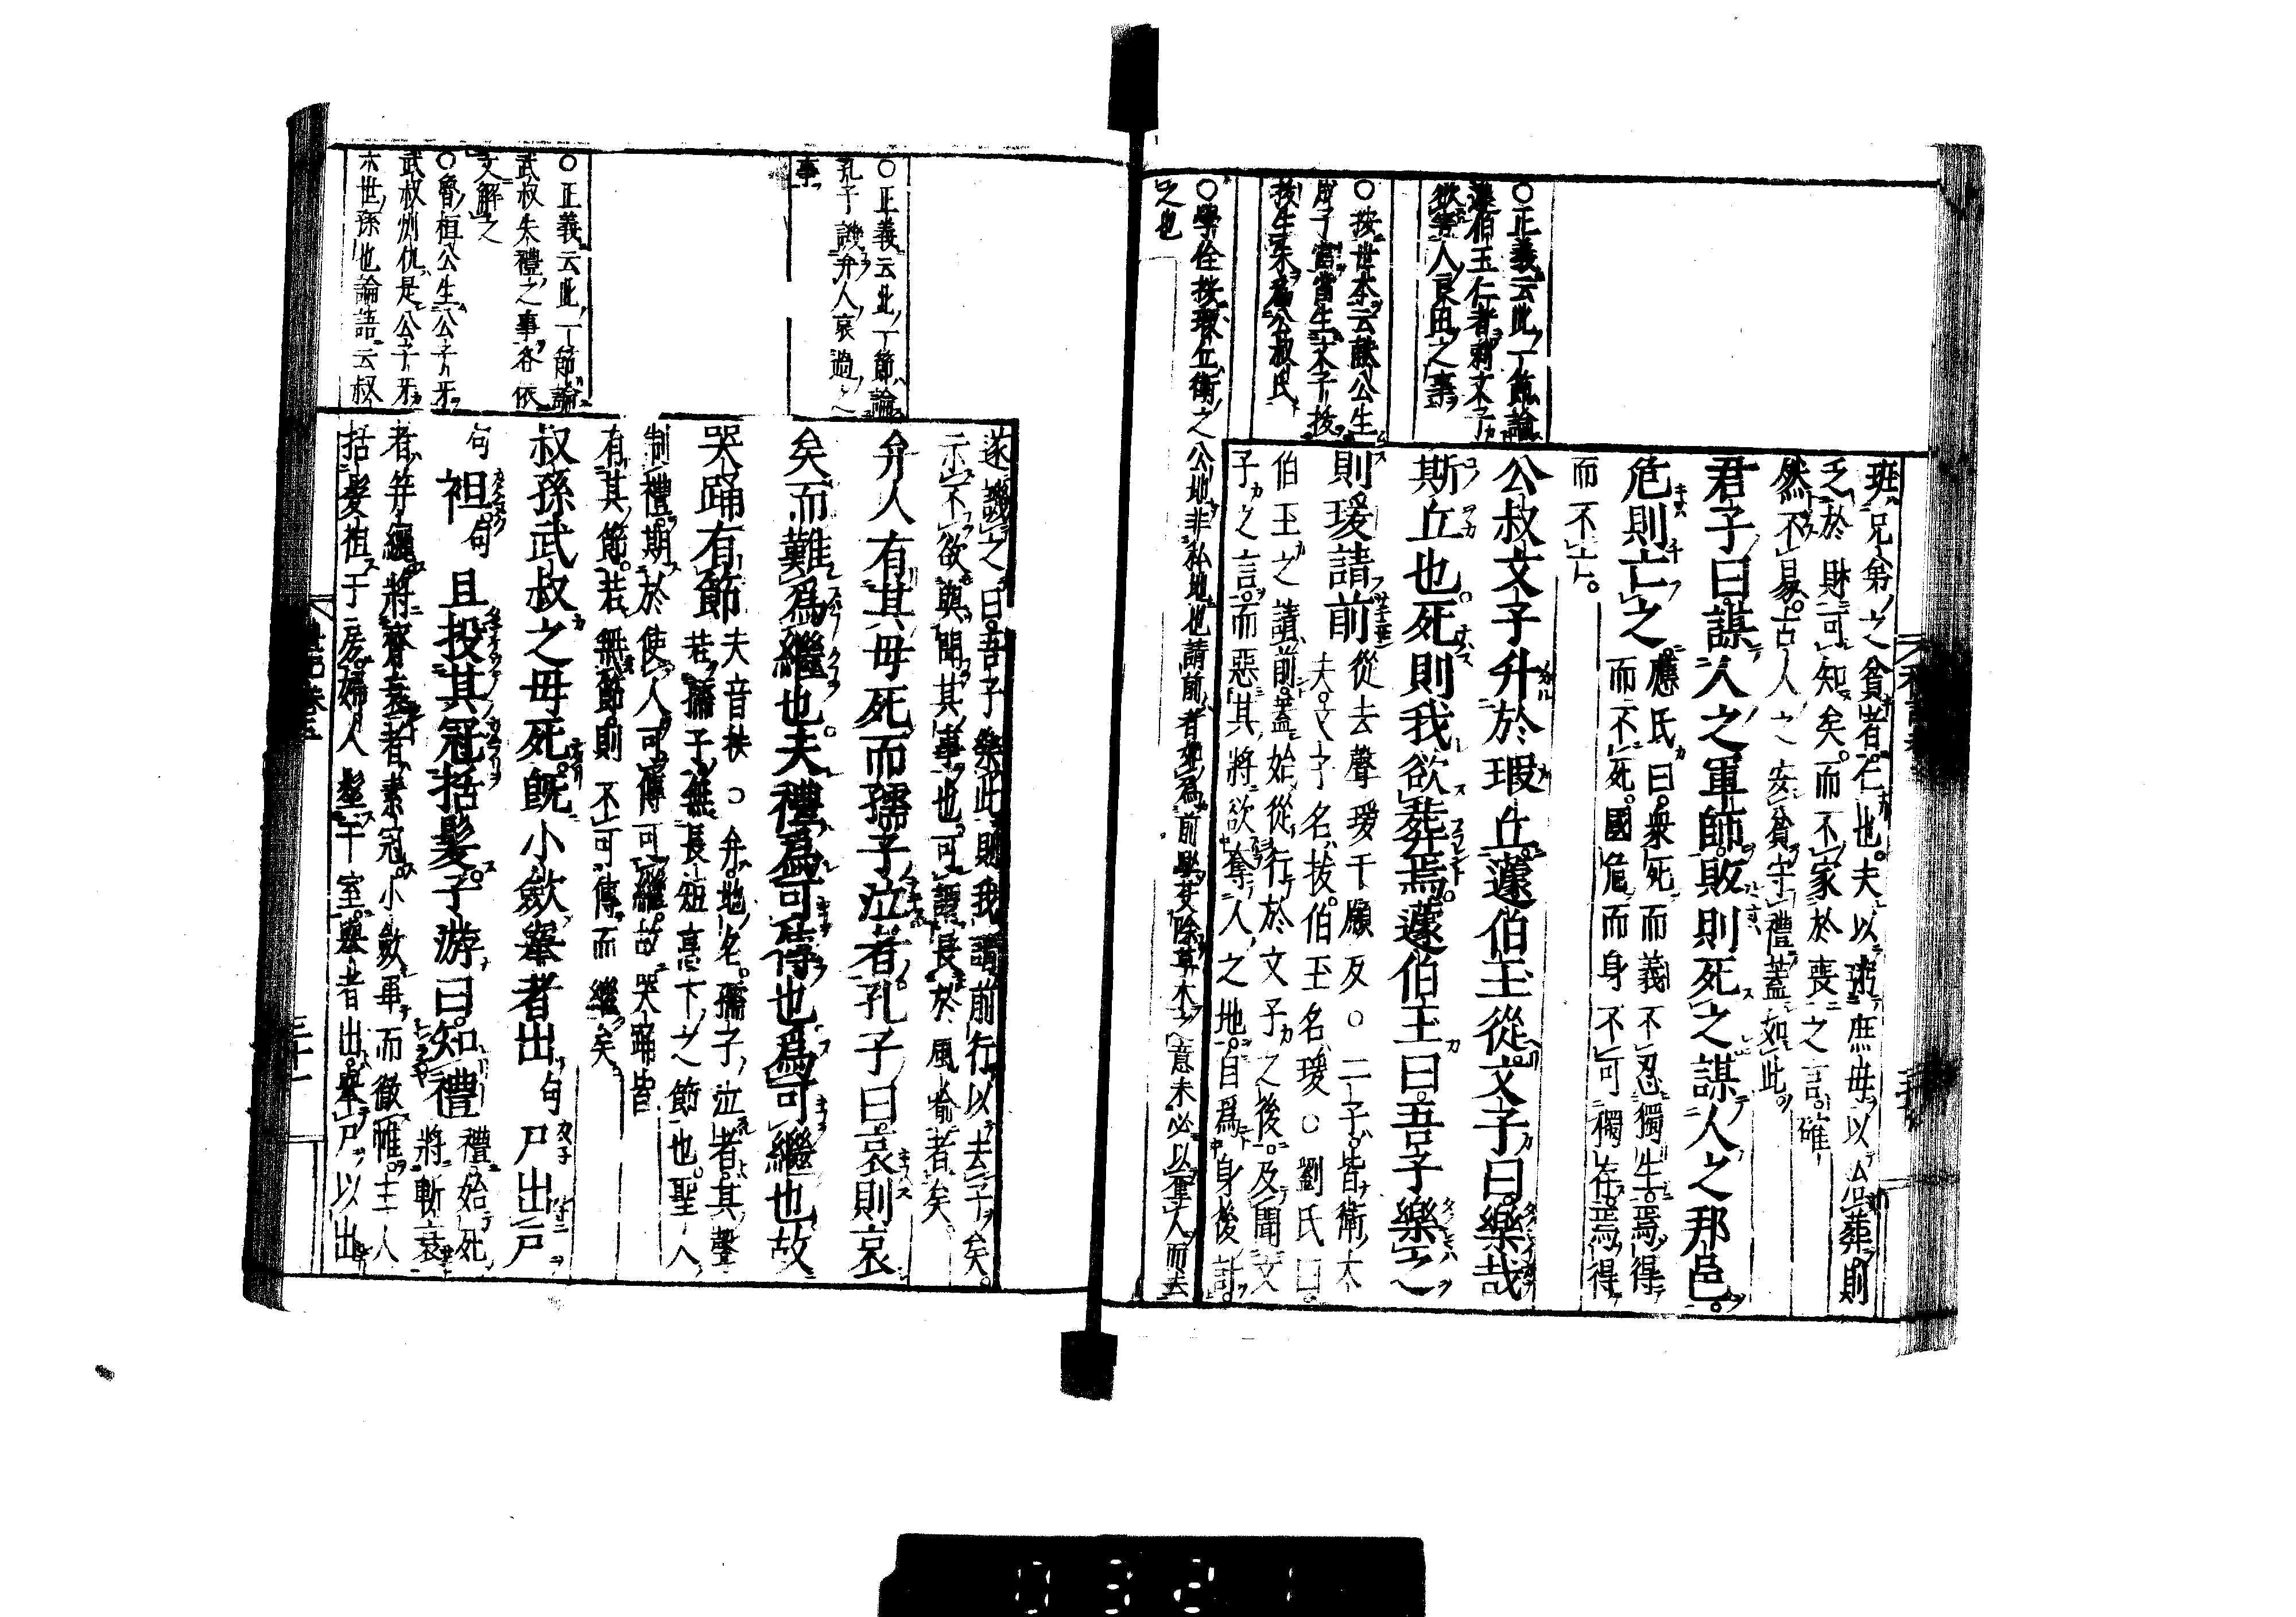 ○正義云此一節論
蘧伯玉仁者刺文子
欲害人良田之事
○按世本云獻公生
成子當當生文子拔
拔生朱爲公叔氏
○學佺按瑕丘衛之公地非私地也請前者
之也
班兄弟之貧者仁也夫以粥庶母以公葬則
乏於財可知矣而不家於喪之言確
然不易古人之安貧守禮蓋如此
君子曰謀人之軍師敗則死之謀人之邦邑
危則亡之
應氏曰衆死而義不忍獨生焉得
而不死國危而身不可獨存焉得
而不亡
公叔文子升於瑕丘蘧伯玉從文子曰樂哉
斯丘也死則我欲葬焉蘧伯玉曰吾子樂之
則瑗請前
從去聲瑗于願反○二子皆衛大
夫文子名拔伯玉名瑗○劉氏曰
伯玉之請前蓋始從行於文子之後及聞文
子之言而惡其將欲奪人之地自爲身後計
○正義云此一節論
孔子譏弁人哀過之
事
○正義云此一節論
武叔失禮之事各依
文解之
○魯桓公生公子牙
武叔州仇是公子牙
六世孫也論語云叔
遂譏之曰吾子樂此則我請前行以去子矣
示不欲與聞其事也可謂長於風喻者矣
弁人有其母死而孺子泣者孔子曰哀則哀
矣而難爲繼也夫禮爲可傳也爲可繼也故
哭踊有節
夫音扶○弁地名孺子泣者其聲
若孺子無長短高下之節也聖人
制禮期於使人可傳可繼故哭踊皆
有其節若無節則不可傳而繼矣
叔孫武叔之母死既小斂舉者出句尸出戶
句袒句且投其冠括髮子游曰知禮
禮始死
將斬衰
者笄纚將齊衰者素冠小斂畢而徹帷主人
括髮袒于房婦人髽于室舉者出舉尸以出
三十一